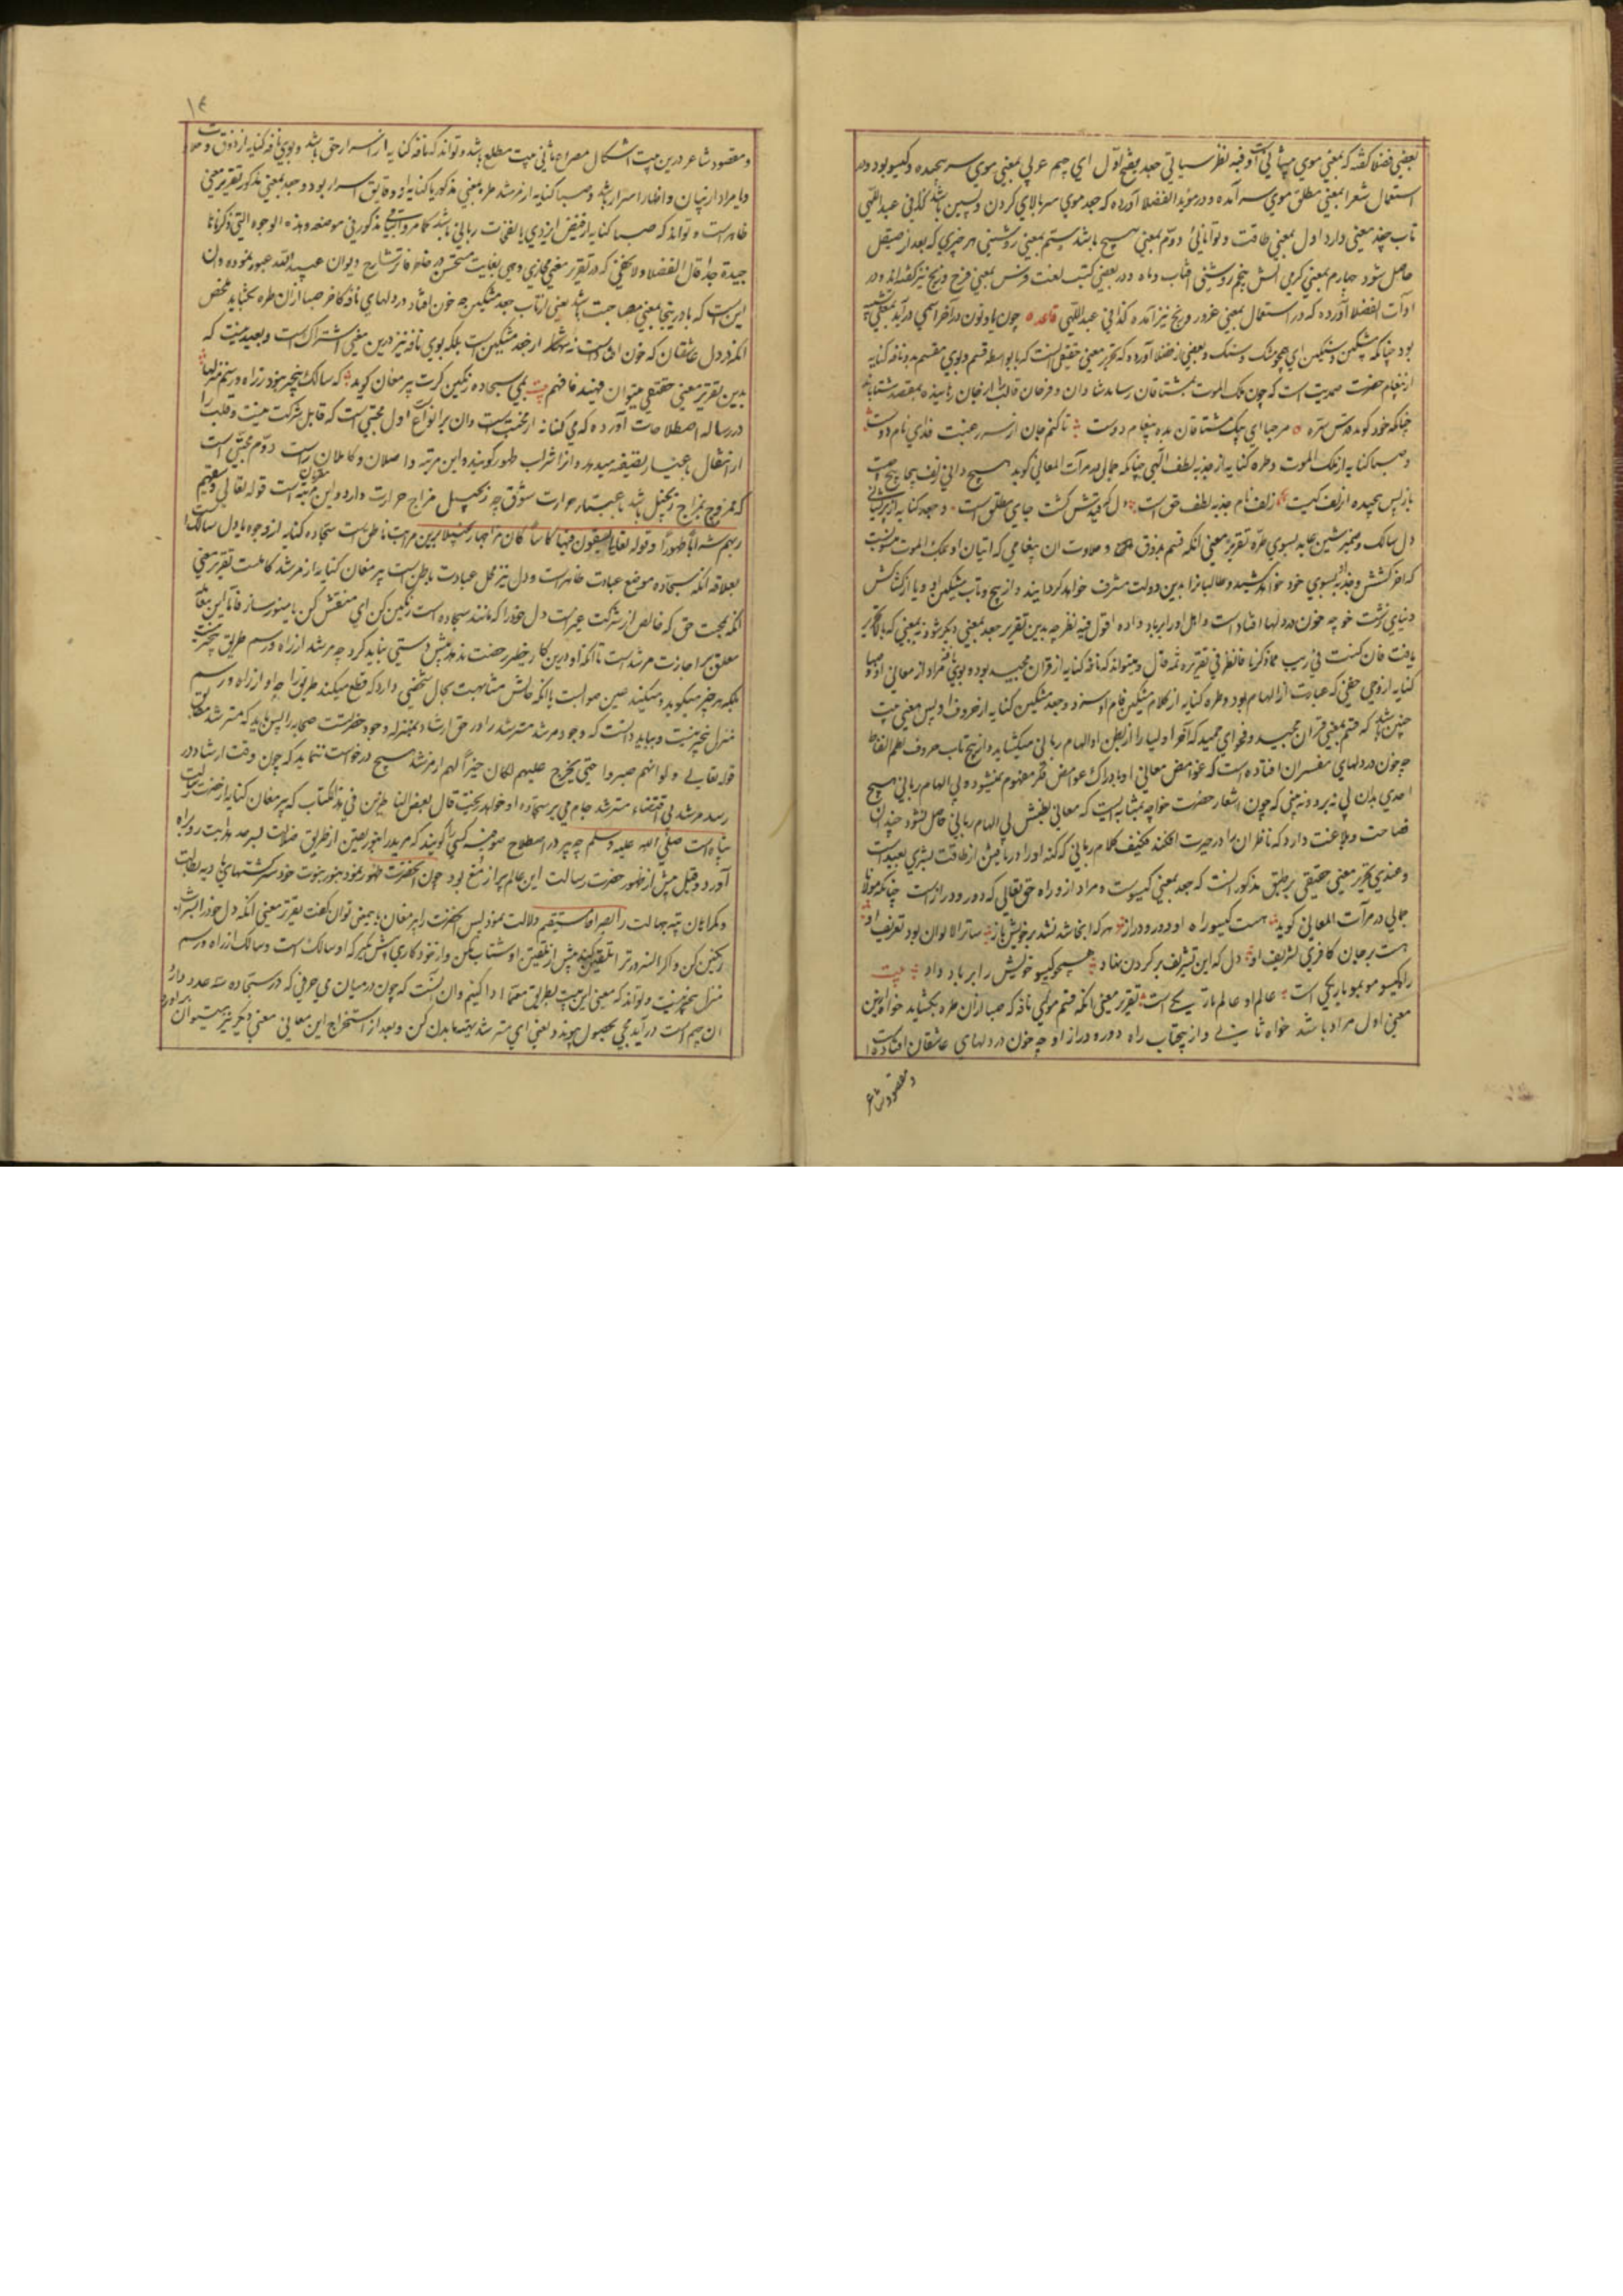 بعضی فضلا گفته که بمعنی موی پیشانی است و فیه نظر سیاتی جعد بفتح اول ای جیم عربی بمعنی موی سر پیچیده و گیسو بود و در
استعمال شعرا بمعنی مطلق موی سر آمده و در موید الفضلا آورده که جعد موی سر بالای گردن و پسین باشد کذا فی عبداللهی
تاب چند معنی دارد اول بمعنی طاقت و توانائی دوم بمعنی پیچ باشد سیم بمعنی روشنی هر چیزی که بعد از صیقل
حاصل شود چهارم بمعنی گرمی آتش پنجم روشنی آفتاب و ماه و در بعضی کتب لغت فرس بمعنی فرح و رنج نیز گفته اند و در
ادات الفضلا آورده که در استعمال بمعنی غرور و رنج نیز آمده کذا فی عبداللهی قاعده چون یا و نون در آخر اسمی در آید بمعنی تشبیه
بود چنانکه مشکین و سنگین ای همچو مشک و سنگ و بعضی از فضلا آورده که تقریر معنی حقیقی آنست که با بواسطه قسم و بوی مقسم به و نافه کنایه
از پیغام حضرت صمدیت است که چون ملک الموت بمشتاقان رساند شادان و فرحان قالب از جان
چنانکه خود گوید قدس سره مرحبا ای پیک مشتاقان بده پیغام دوست تا کنم جان از سر رغبت فدای نام دوست
و صبا کنایه از ملک الموت و طره کنایه از جذبه لطف الهی چنانکه جمالی در مرآت المعانی گوید هیچ دانی زلف
باز پس پیچیده از لف کیست زلف نام جذبه لطف حق است دل گرفتش گشت جای مطلق است و جعد کنایه از پریشانی
دل سالک و ضمیر شین عاید بسوی طره تقریر معنی آنکه قسم بذوق و حلاوت آن پیغامی که اتیان او بملک الموت منسوبست
که آخر کشش و جذبه بسوی خود خواهد کشید و طالبان را بدین دولت مشرف خواهد گردانید و از پیچ و تاب مشکین او و یا از کشاکش
دنیای زشت خو چه خون در دلها افتاده است و اهل او را بر باد داده اقول فیه نظر چه بدین تقریر جعد بمعنی دیگر شود نه بمعنی که بالا تحریر
یافت فان کنت فی ریب مما ذکرنا فانظر فی تقریره ثم قال و میتواند که نافه کنایه از قرآن مجید بود و بوی نافه مراد از معانی او و صبا
کنایه از وحی خفی که عبارت از الهام بود و طره کنایه از کلام مشکین فام او سزد و جعد مشکین کنایه از حروف او پس معنی بیت
چنین باشد که قسم بمعنی قرآن مجید و فحوای حمید که آخر اولیا را از بطن او الهام ربانی میکشاید و از پیچ تاب حروف نظم الفاظ
چه خون در دلهای مفسران افتاده است که غوامض معانی او بادراک غوامض فکر مفهوم نمیشود و بی الهام ربانی هیچ
احدی بدان پی نبرد و نه بینی که چون اشعار حضرت خواجه بمثابه ایست که معانی بطنش بی الهام ربانی حاصل نشود چندان
فصاحت و بلاغت دارد که ناظران را در حیرت افکند فکیف کلام ربانی که کنه او را دریافتن از طاقت بشری بعید است
و عندی تحریر معنی حقیقی بر طبق مذکور آنست که جعد بمعنی گیسوست و مراد از و راه حق تعالی که دور و دراز است چنانکه مولانا
جمالی در مرآت المعانی گوید هست گیسو راه او دور و دراز هر که اینجا شد نشد بر خویش باز ساتر الالوان بود تعریف او
هست بر جان کافری تشریف او دل که این تشریف بر گردن نهاد همچو گیسو خویش را بر باد داد بیت
راه گیسو مو بمو باریکی است عالم او عالم تاریکی است تقریر معنی آنکه قسم ببوی نافه که صبا زان طره بکشاید خواه این
معنی اول مراد باشد خواه ثانی و از پیچتاب راه دور و دراز او چه خون در دلهای عاشقان افتاده است
و مقصود شاعر
۱۴
و مقصود شاعر درین بیت اشکال مصراع ثانی بیت مطلع باشد و تواند که نافه کنایه از اسرار حق باشد و بوی نافه کنایه از ذوق و
و یا مراد از بیان و اظهار اسرار باشد و صبا کنایه از مرشد طره بمعنی مذکور یا کنایه از دقایق اسرار بود و جعد بمعنی مذکور تقریر معنی
ظاهر است و تواند که صبا کنایه از فیض ایزدی یا نفحات ربانی باشد کما مر و باقی مذکور فی موضعه و هذه الوجوه التی ذکرناها
جیدة جدا قال الفضلا و لا یخفی که در تقریر معنی مجازی وجهی بغایت مستحسن در خاطر فاتر شارح دیوان عبید الله عبور نموده و آن
این است که با در اینجا بمعنی مصاحبت باشد یعنی از تاب جعد مشکین چه خون افتاد در دلهای نافه کاخر صبا زان طره بکشاید محض
آنکه در دل عاشقان که خون افتاده است نه تنها که از جعد مشکین است بلکه بوی نافه نیز درین معنی اشتراک است و بعید نیست که
بدین تقریر معنی حقیقی میتوان فهمید فافهم بیت بمی سجاده رنگین کن گرت پیر مغان گوید که سالک بیخبر نبود ز راه و رسم منزلها
در رساله اصطلاحات آورده که می کنایه از محبت است و آن بر انواع است اول محبتی است که قابل شرکت نیست و قلب را
از اشتغال باغیار تصفیه میدهد و آنرا شراب طهور گویند و این مرتبه واصلان و کاملان راست دوم محبتی است
که ممزوج بمزاج زنجبیل باشد باعتبار حرارت شوق چه زنجبیل مزاج حرارت دارد و این مرتبه است قوله تعالی و سقیهم
ربهم شرابا طهورا و قوله تعالی یسقون فیها کاسا کان مزاجها زنجبیلا برین مراتب ناطق است سجاده کنایه از وجود یا دل سالک است
بعلاقه آنکه سجاده موضع عبادت ظاهر است و دل نیز محل عبادت باطن است پیر مغان کنایه از مرشد کامل است تقریر معنی
آنکه بمحبت حق که خالص از شرکت غیر است دل خود را که مانند سجاده است رنگین کن ای منقش کن یا منور ساز فاما این معنی
معلق بر اجازت مرشد است تا آنکه او درین کار خطیر رخصت ندهد پیش دستی نباید کرد چه مرشد از راه و رسم طریق بیخبر نیست
بلکه هر چیز میگوید و میکند عین صواب است یا آنکه حالش مشابهت بحال شخصی دارد که قطع میکند طریق را چه او از راه و رسم
منزل بیخبر نیست و بباید دانست که وجود مرشد مسترشد را در حق ارشاد بمنزله وجود حضرتست صحابه را پس باید که مسترشد مطابق
قوله تعالی و لو انهم صبروا حتی یخرج علیهم لکان خیرا لهم از مرشد هیچ درخواست ننماید که چون وقت ارشاد در
رسد مرشد بی اقتضاء مسترشد جام می بر سجاده او خواهد ریخت قال بعض الناظرین فی هذا الکتاب که پیر مغان کنایه از حضرت رسالت
پناه است صلی الله علیه و سلم چه پیر در اصطلاح صوفیه کسی را گویند که مرید را بنور یقین از طریق ضلالت بسرحد هدایت رو براه
آورد و قبل بیش از ظهور حضرت رسالت این عالم پر از مغ بود چون آنحضرت ظهور نمود بنور نبوت خود سرگشتهای بادیه بطالت
و گمراهان تیه جهالت را بصراط مستقیم دلالت نمود پس آنحضرت را پیر مغان باین معنی توان گفت تقریر معنی آنکه دل خود را بشراب
رنگین کن و اگر آنسرور ترا تلقین نکند پیش از تلقینش او شتاب مکن و از خود کاری پیش مگیر که او سالک است و سالک از راه و رسم
منزل بیخبر نیست و تواند که معنی این بیت بطریق معما ادا کنیم و آن آنست که چون در میان می حرفی که در سجاده سه عدد دارد
آن جیم است در آید مجی بحصول پیوندد یعنی ای مسترشد بهمه ما بدن کن و بعد از استخراج این معانی معنی دیگر نیز میتوان برآورد